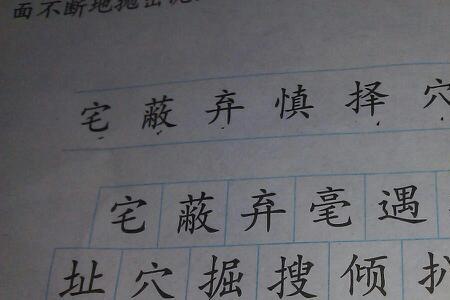 面不断地抛出泥
宅蔽弃慎择穴
宅蔽弃毫遇
址穴掘搜倾扒